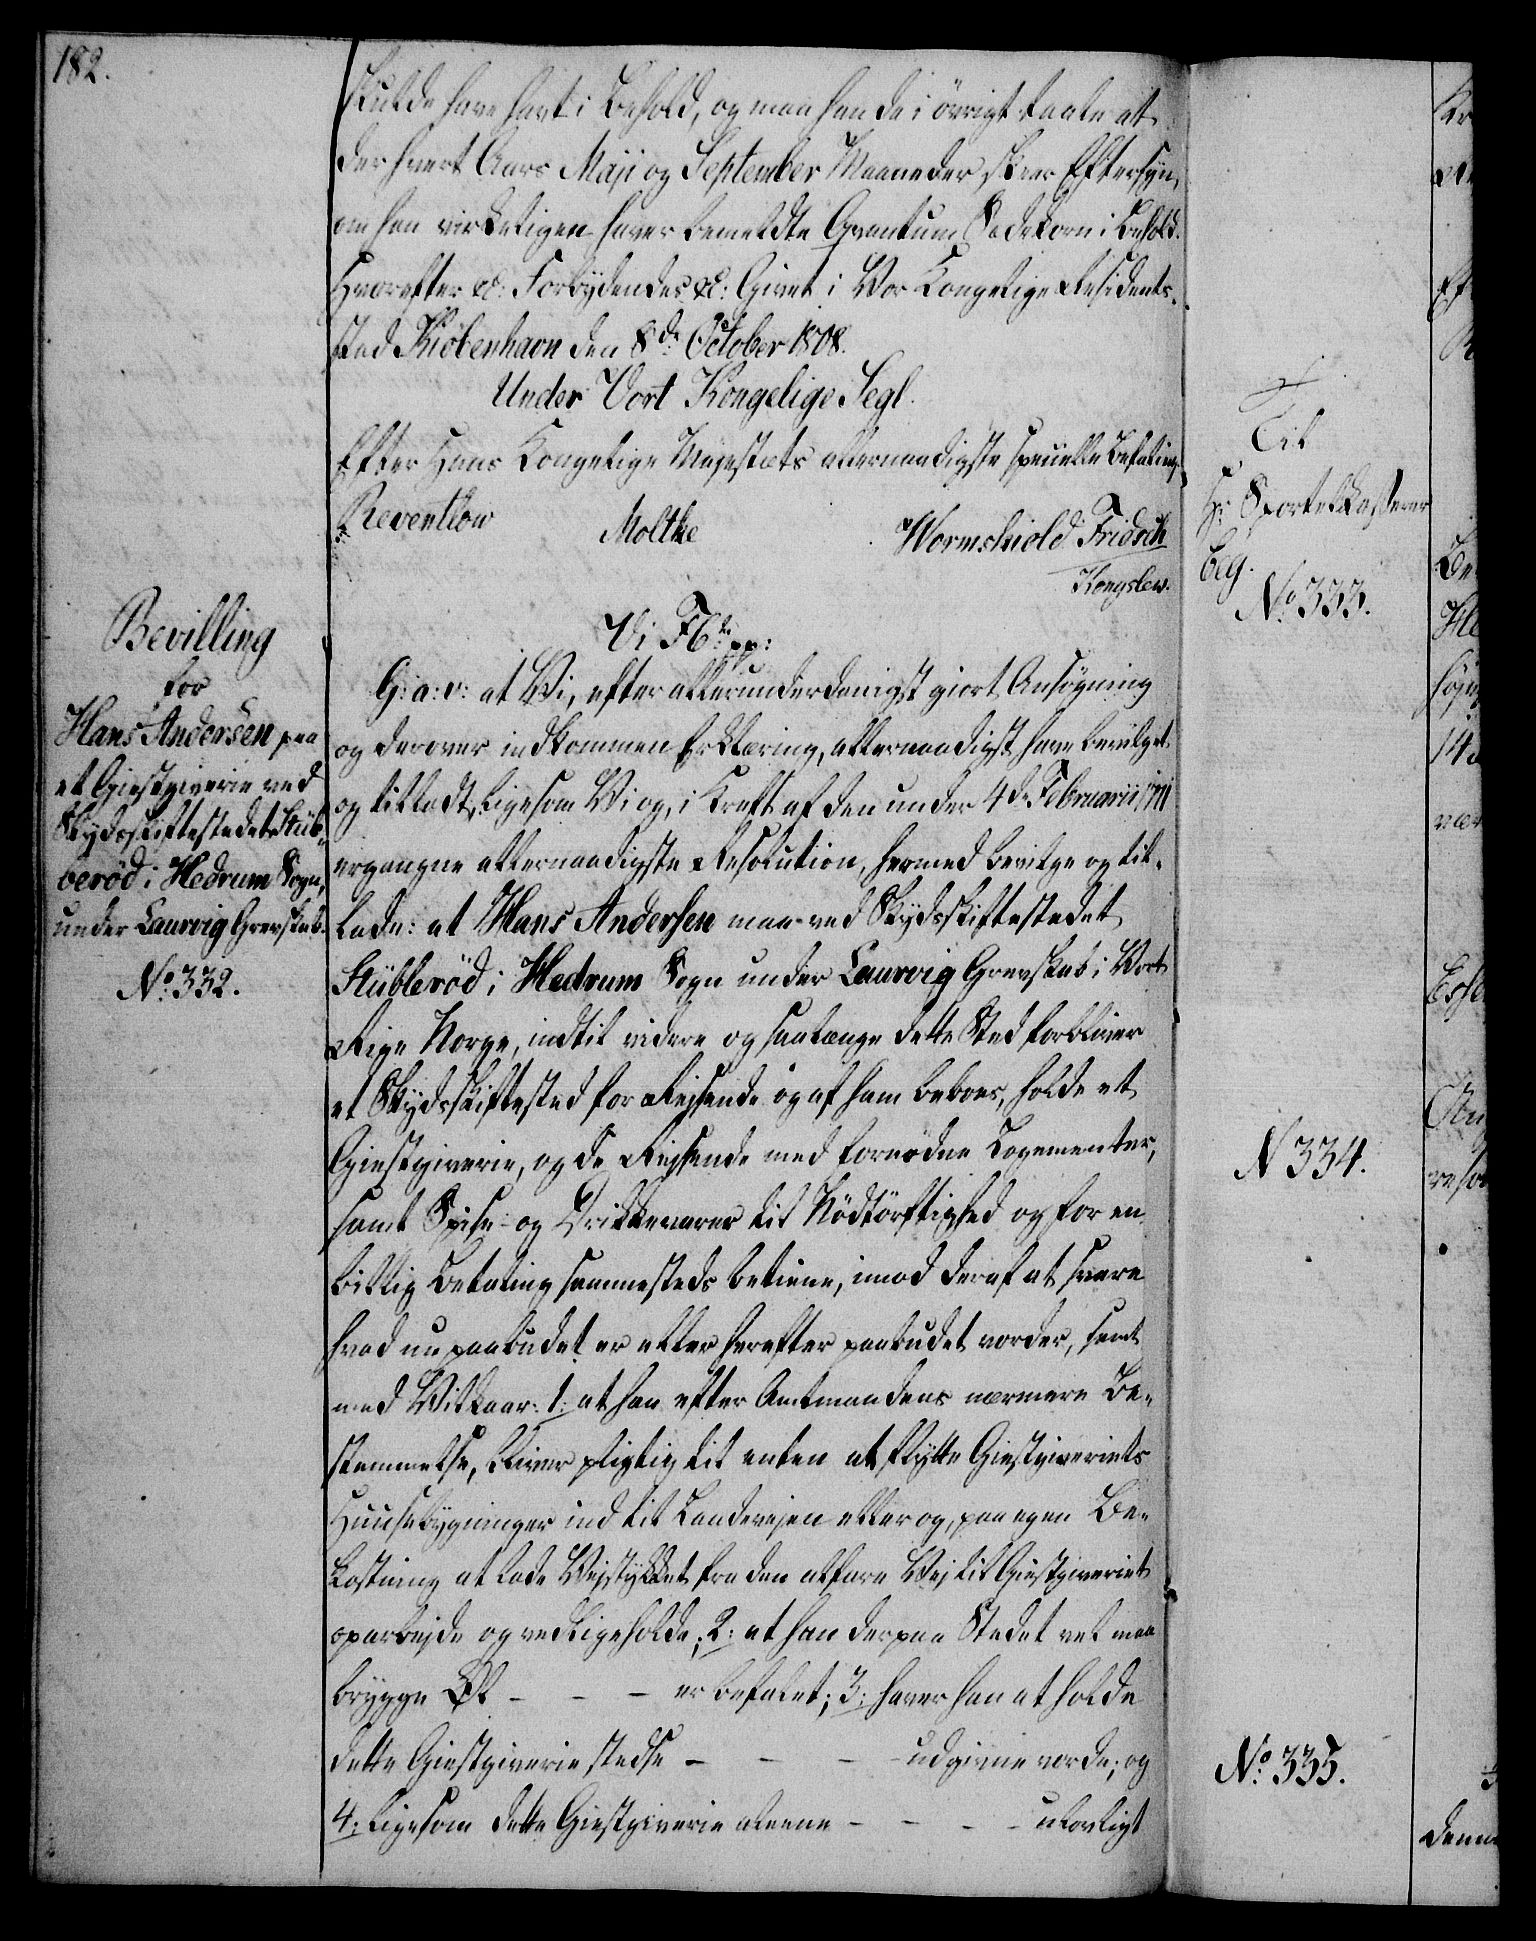 182.
skulde have havt i Behold, og maa han de i övrigt taale at
der hvert Aars Maji og September Maaneder skeer Eftersyn,
om han virkeligen haver bemeldte Qvantum Sædekorn i Behold.
Hvorefter &: Forbydendes &: Givet i Vor Kongelige Residents-
stad Kiöbenhavn den 8de October 1808.
Under Vort Kongelige Segl.
Efter Hans Kongelige Majestæts allernaadigste specielle Befaling
Reventlow Moltke Wormskiold Fridsch
Kongslew.
Bevilling
for
Hans Andersen paa
et Giestgiverie ved
Skydsskiftestedet Stüb-
beröd i Hedrum Sogn,
under Laurvig Grevskab.
No. 332.
Vi F6te pp:
G: a: v: at Vi, efter allerunderdanigst giort Ansögning
og derover indkommen Erklæring, allernaadigst have bevilget
og tilladt, ligesom Vi og, i Kraft af den under 4de Februarii 1711
ergangne allernaadigste Resolution, hermed bevilge og til-
lade: at Hans Andersen maa ved Skydsskiftestedet
Stübberöd i Hedrum Sogn under Laurvig Grevskab i Vort
Rige Norge, indtil videre og saalænge dette Sted forbliver
et Skydsskiftested for Rejsende og af ham beboes, holde et
Giestgiverie, og de Rejsende med fornödne Logementer,
samt Spise- og Drikkevarer til Nödtörftighed og for en
billig Betaling sammesteds betiene, imod deraf at svare
hvad nu paabudet er eller herefter paabudet vorder, samt
med Vilkaar: 1: at han efter Amtmandens nærmere Be-
stemmelse, bliver pligtig til enten at flytte Giestgiveriets
Huusebygninger ind til Landevejen eller og, paa egen Be-
kostning at lade Vejstykket fra den alfare Vej til Giestgiveriet
oparbejde og vedligeholde; 2: at han derpaa Stedet vel maa
brygge Öl - - - er befalet; 3: haver han at holde
dette Giestgiverie stedse - - - udgivne vorde; og
4: ligesom dette Giestgiverie aleene - - - ulovligt
Til
Hr. Sportelkasserer
No. 333.
N 334.
No. 335.